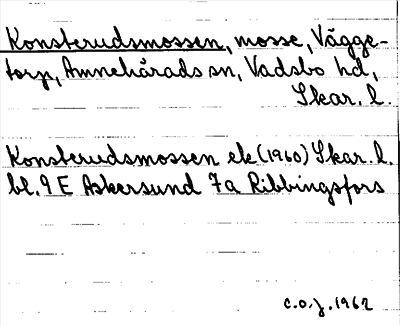 Konsterudsmossen, mosse, Vägge-
torp, Amnehärads sn, Vadsbo hd,
Skar. l.
Konsterudsmossen ek (1960) Skar. l.
bl. 9 E Askersund 7a Ribbingsfors
c.o.j. 1962